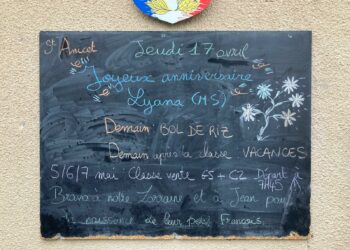 St Anicet
Jeudi 17 avril
Joyeux anniversaire
Lyana (MS)
Demain: BOL DE RIZ
Demain après la classe: VACANCES
5/6/7 mai Classe verte GS + CE Départ à
7H45
Bravo à notre Lorraine et à Jean pour
naissance de leur petit François.